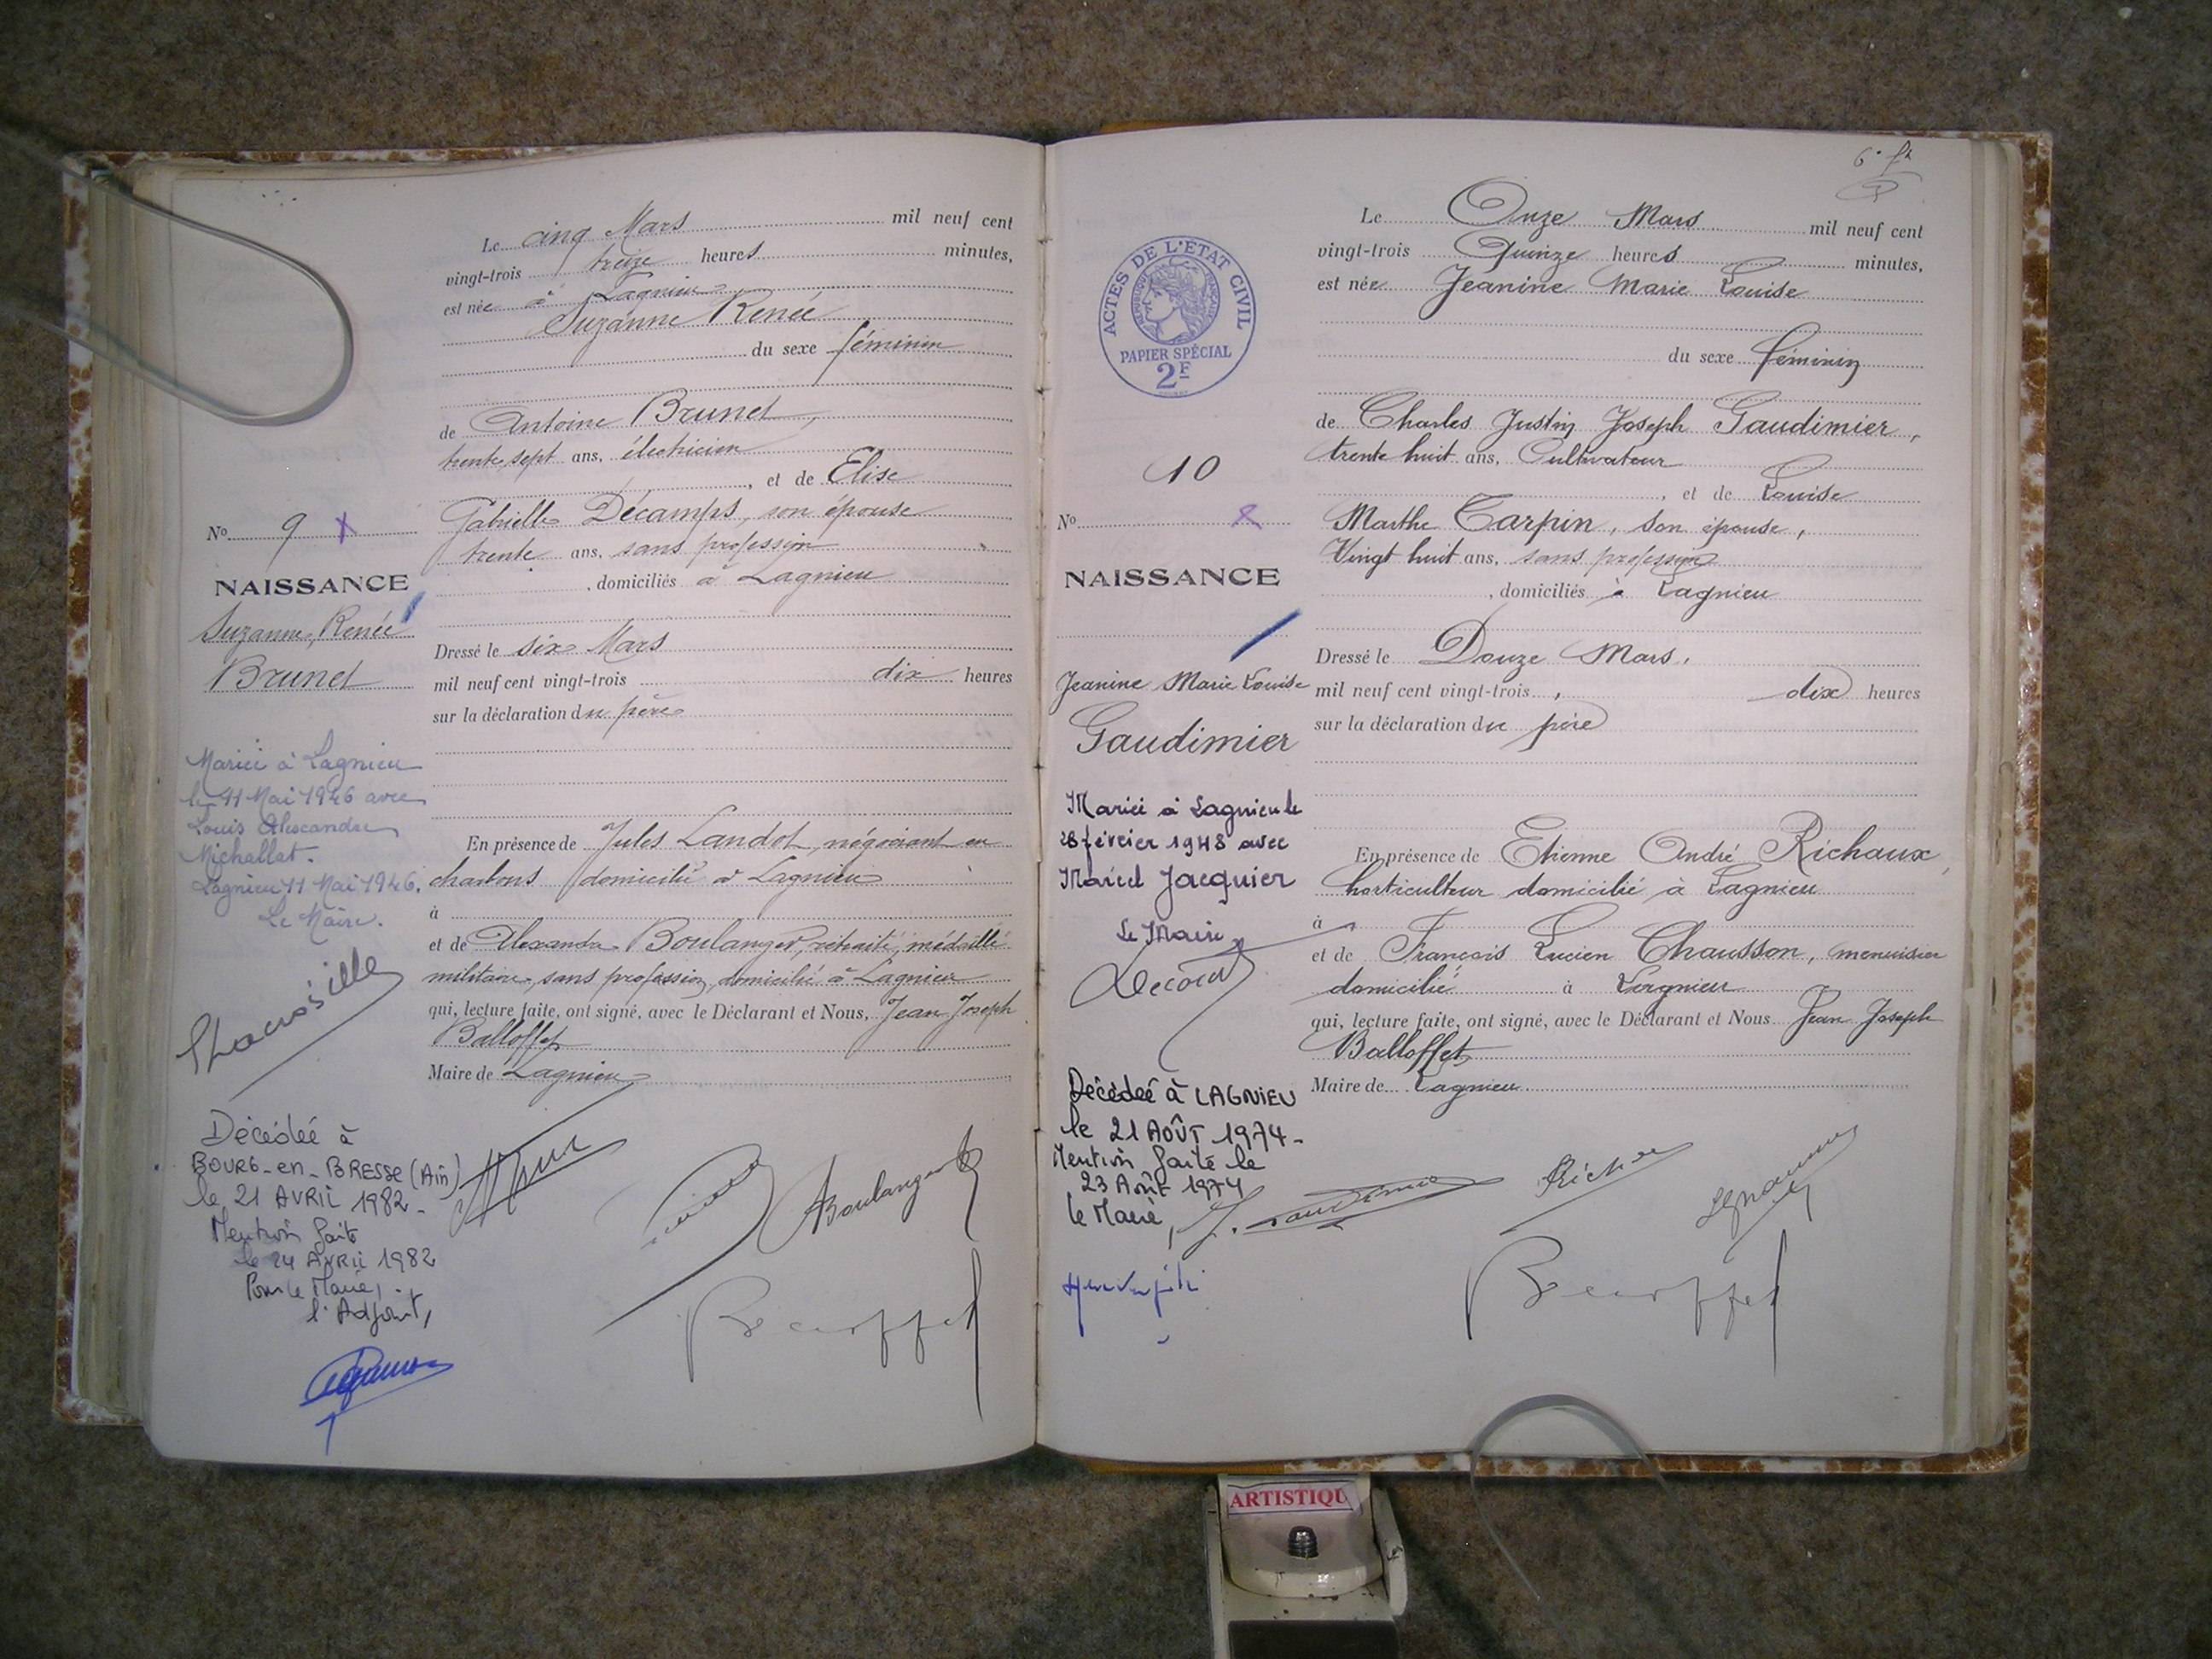 Le cinq Mars mil neuf cent
vingt-trois treize heures minutes,
est née à Lagnieu
Suzanne Renée
du sexe féminin
de Antoine Brunet,
trente sept ans, électricien
, et de Elise
Gabrielle Décamps, son épouse
trente ans, sans profession
, domiciliés à Lagnieu
Dressé le six Mars
mil neuf cent vingt-trois dix heures
sur la déclaration du père
En présence de Jules Landot, négociant en
charbons domicilié à Lagnieu
à
et de Alexandre Boulanger, retraité, médaillé
militaire sans profession, domicilié à Lagnieu
qui, lecture faite, ont signé, avec le Déclarant et Nous, Jean Joseph
Balloffet
Maire de Lagnieu
Boulanger
Balloffet
No 9 X
NAISSANCE
Suzanne, Renée
Brunet
Mariée à Lagnieu
le 11 Mai 1946 avec
Louis Alexandre
Michallat.
Lagnieu 11 Mai 1946.
Le Maire.
Décédée à
BOURG-en-BRESSE (Ain)
le 21 AVRIL 1982-
Mention faite
le 24 AVRIL 1982
Pour le Maire,
l'Adjoint,
6e
ACTES DE L'ÉTAT CIVIL
RÉPUBLIQUE FRANÇAISE
PAPIER SPÉCIAL
2F
10
No
NAISSANCE
Jeanine Marie Louise
Gaudimier
Mariée à Lagnieu le
28 février 1948 avec
Marcel Jacquier
Le Maire
Décédée à LAGNIEU
le 21 AOÛT 1974-
Mention faite le
23 Août 1974
le Maire,
Le Onze Mars mil neuf cent
vingt-trois Quinze heures minutes,
est née Jeanine Marie Louise
du sexe féminin
de Charles Justin Joseph Gaudimier,
trente huit ans, Cultivateur
, et de Louise
Marthe Tarpin, son épouse,
Vingt huit ans, sans profession
, domiciliés à Lagnieu
Dressé le Douze Mars.
mil neuf cent vingt-trois, dix heures
sur la déclaration du père
En présence de Etienne André Richaux,
horticulteur domicilié à Lagnieu
à
et de François Lucien Chausson, menuisier
domicilié à Lagnieu
qui, lecture faite, ont signé, avec le Déclarant et Nous Jean Joseph
Balloffet
Maire de Lagnieu
Balloffet
ARTISTIQU